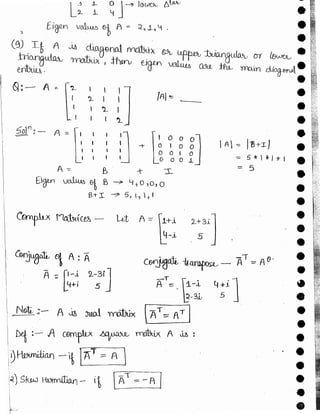 1 2 0 → lower Δlar
2 1 4
Eigen values of A = 2,1,4.
(9) If A is diagonal matrix or upper triangular or lower
triangular matrix, then eigen values are the main diagonal
entries.
Q:— A = [2 1 1 1
1 2 1 1
1 1 2 1
1 1 1 2] |A| = ___
Solⁿ:— A = [1 1 1 1
1 1 1 1
1 1 1 1
1 1 1 1] + [1 0 0 0
0 1 0 0
0 0 1 0
0 0 0 1] |A| = |B+I|
= 5*1*1*1
= 5
A = B + I
Eigen values of B → 4,0,0,0
B+I → 5,1,1,1
Complex Matrices — Let A = [1+i 2+3i
4-i 5]
Conjugate of A : Ā
Ā = [1-i 2-3i
4+i 5]
Conjugate transpose — Ā^T = A^θ.
Ā^T = [1-i 4+i
2-3i 5]
Note:— A is real matrix Ā^T = A^T
Def:— A complex square matrix A is :
1) Hermitian — if Ā^T = A
2) Skew Hermitian — if Ā^T = -A